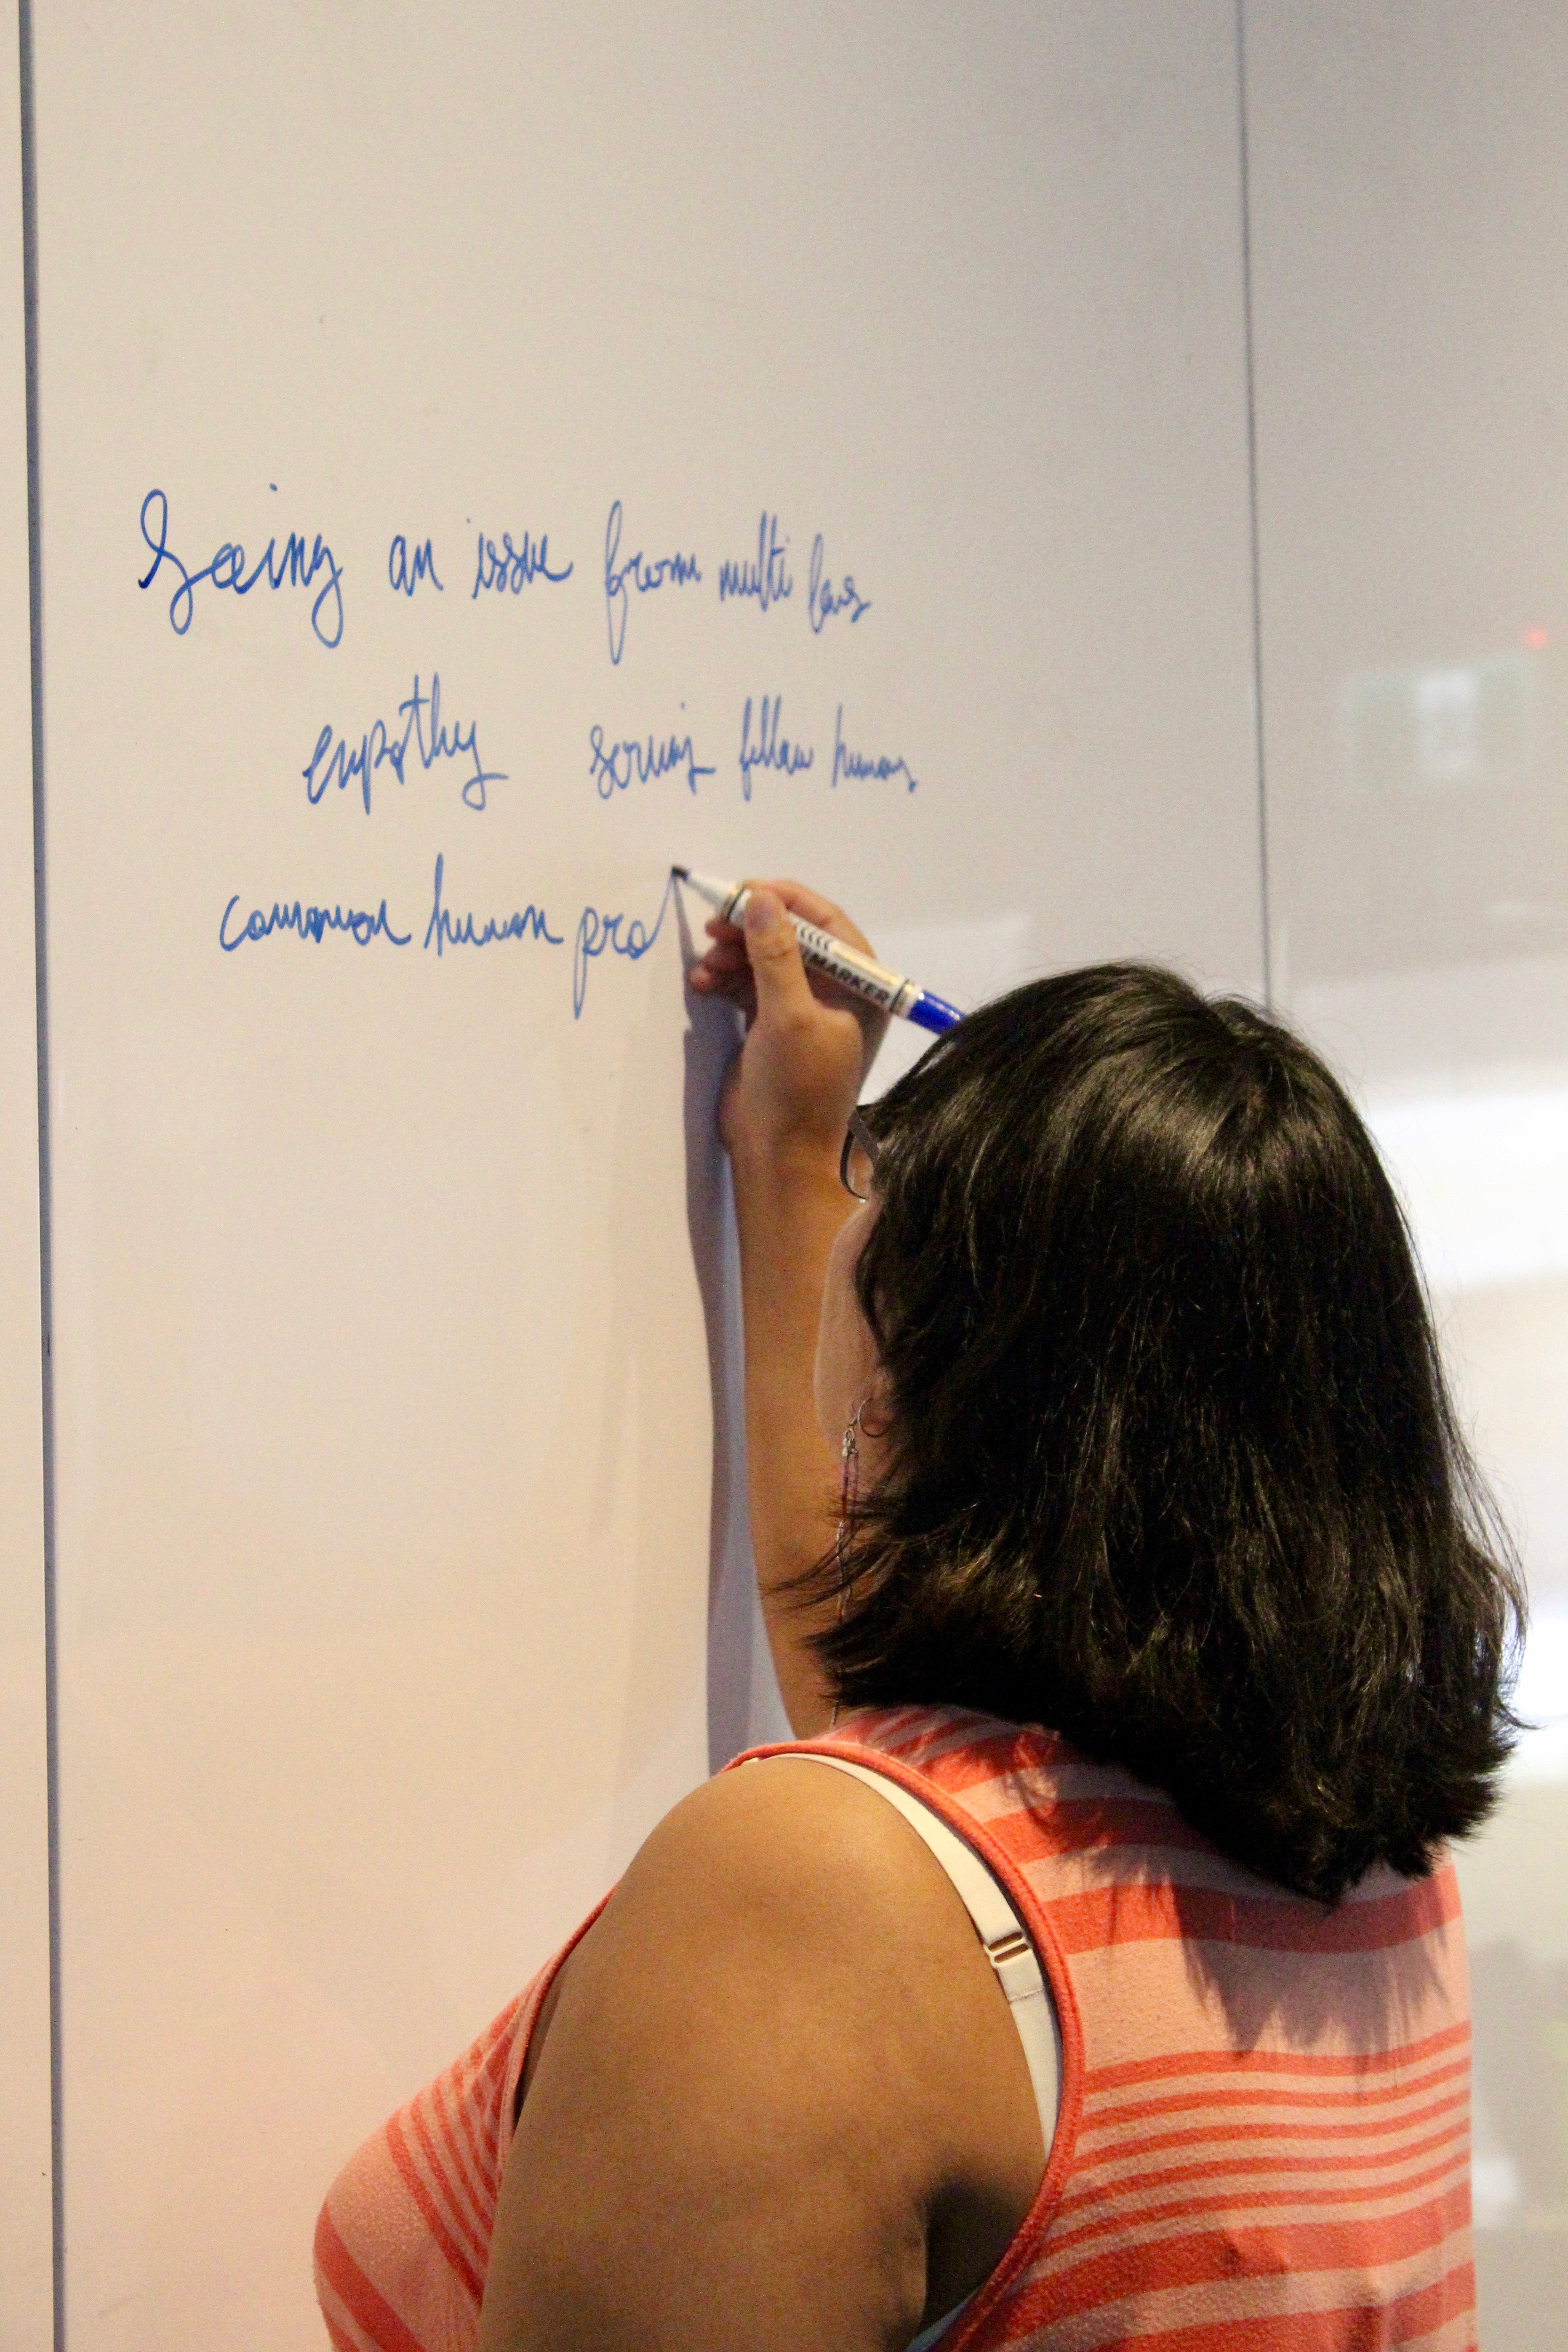 Seeing an issue from multi lens
empathy serving fellow humans
common human pro
MARKER